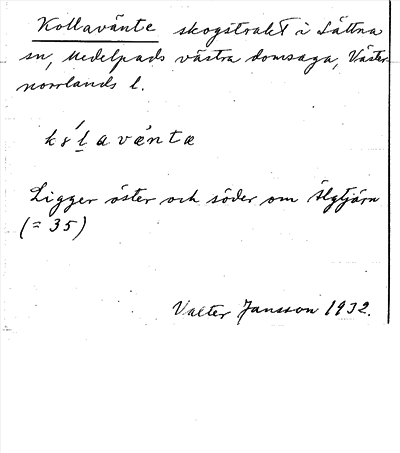 Kollavänte skogstrakt i Lättna
sn, Medelpads västra domsaga, Väster-
norrlands l.
Ligger öster och söder om Älgtjärn
(= 35)
Valter Jansson 1932.